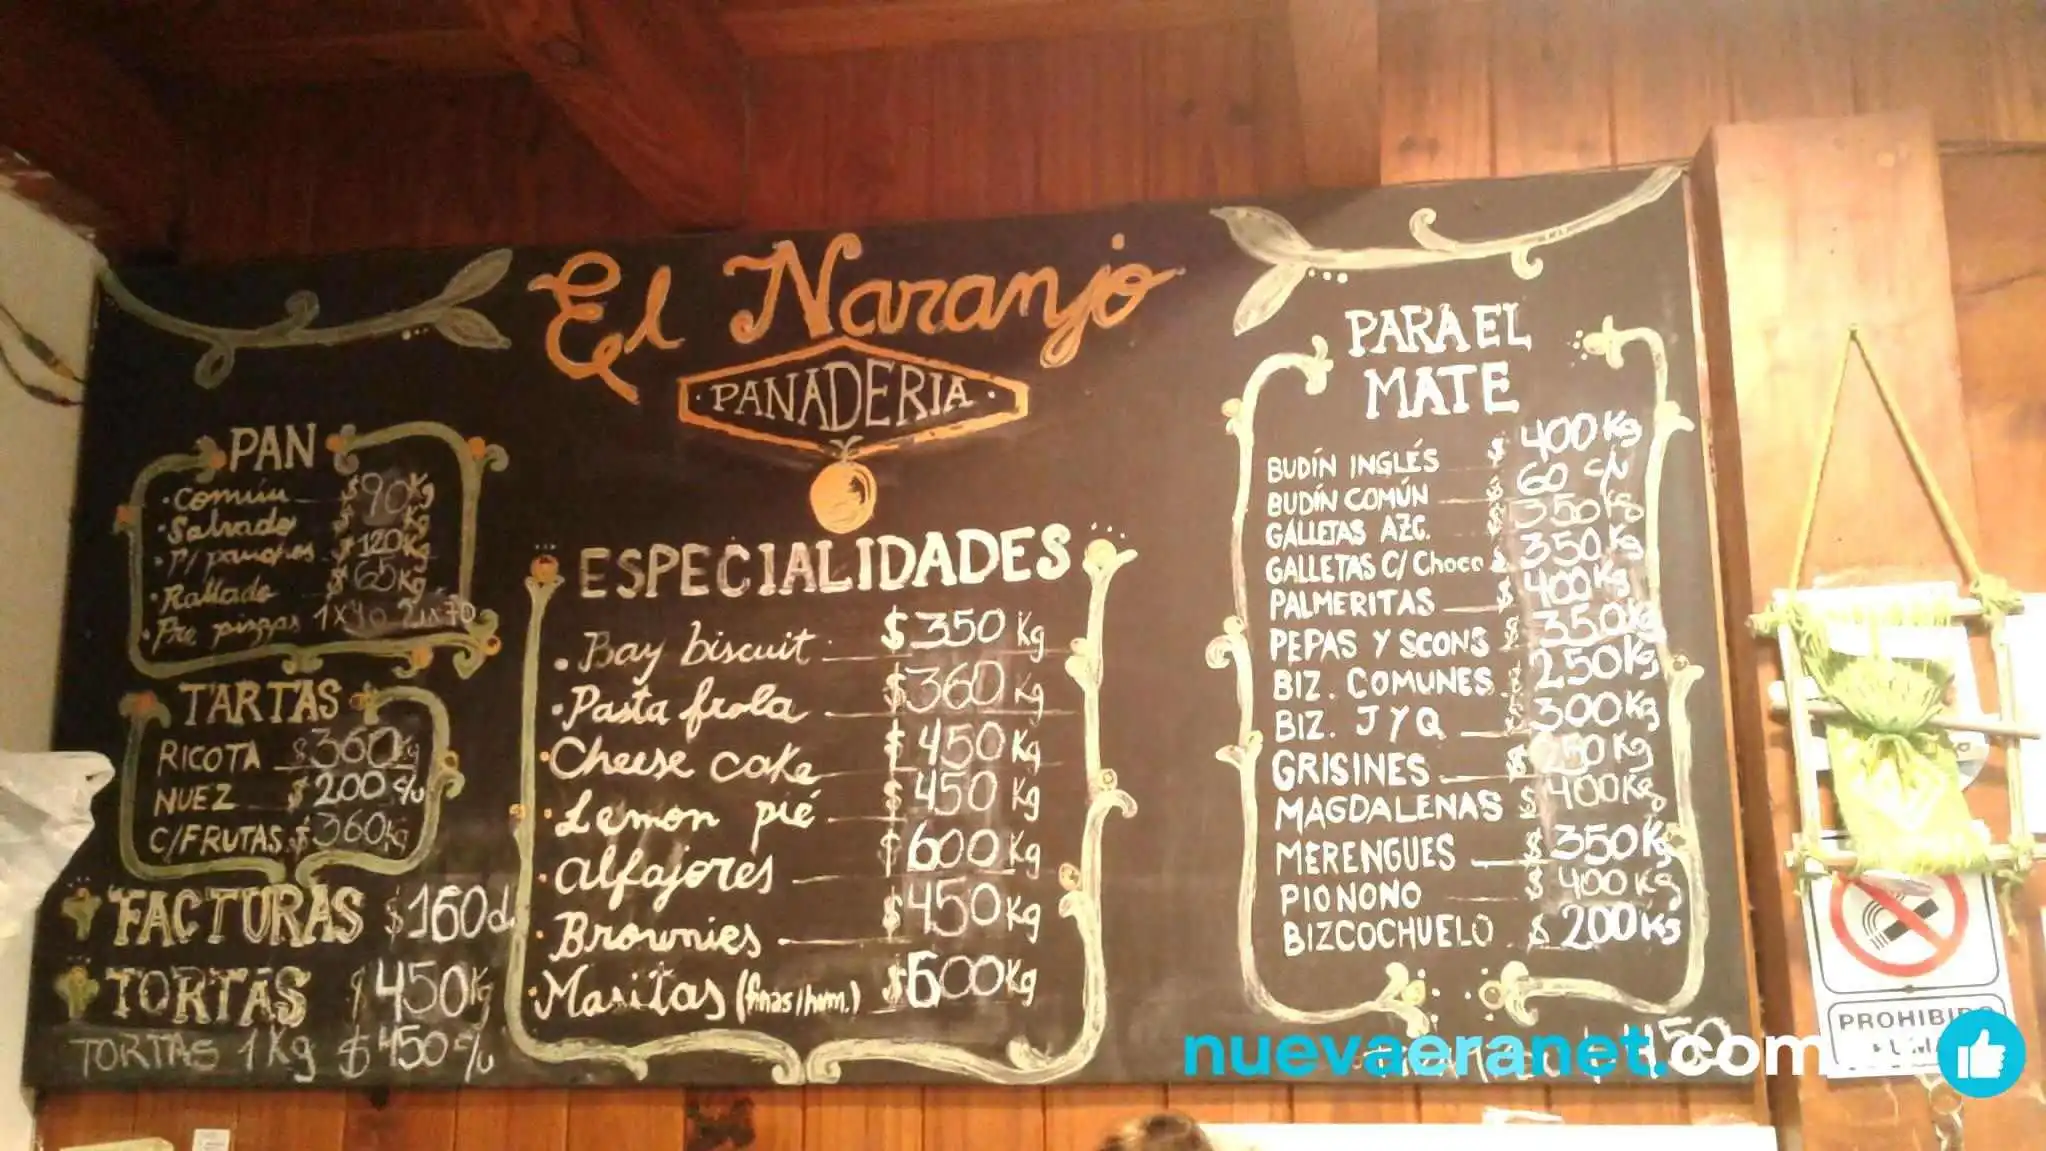 El Naranjo
· PANADERIA ·
PAN
· Común $ 90 Kg
· Salvado $ Kg
· P/ panchos $ 120 Kg
· Rallado $ 65 Kg
· Pre pizzas 1x40 2x70
TARTAS
RICOTA $ 360 Kg
NUEZ $ 200 c/u
C/FRUTAS $ 360 Kg
FACTURAS $ 160 d.
TORTAS $ 450 Kg
TORTAS 1 Kg $ 450 c/u
ESPECIALIDADES
· Bay biscuit $ 350 Kg
· Pasta frola $ 360 Kg
· Cheese cake $ 450 Kg
· Lemon pié $ 450 Kg
· Alfajores $ 600 Kg
· Brownies $ 450 Kg
· Masitas (finas/hum.) $ 600 Kg
PARA EL
MATE
BUDÍN INGLÉS $ 400 Kg
BUDÍN COMÚN $ 60 c/u
GALLETAS AZC. $ 350 Kg
GALLETAS C/ Choco $ 350 Kg
PALMERITAS $ 400 Kg
PEPAS Y SCONS $ 350 Kg
BIZ. COMUNES $ 250 Kg
BIZ. J Y Q $ 300 Kg
GRISINES $ 250 Kg
MAGDALENAS $ 400 Kg
MERENGUES $ 350 Kg
PIONONO $ 400 Kg
BIZCOCHUELO $ 200 Kg
450
nuevaeranet.com
PROHIBIDO